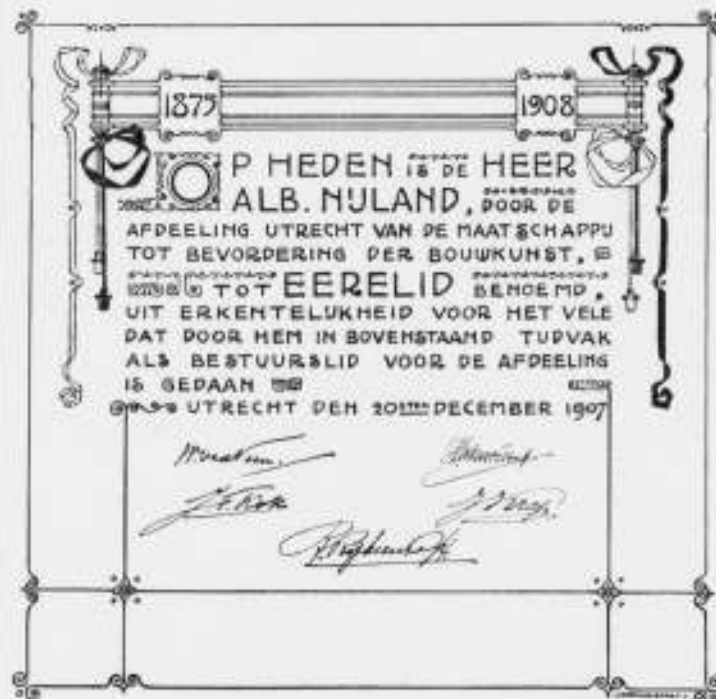 1875 1908
OP HEDEN IS DE HEER
ALB. NIJLAND, DOOR DE
AFDEELING UTRECHT VAN DE MAATSCHAPPIJ
TOT BEVORDERING DER BOUWKUNST,
TOT EERELID BENOEMD,
UIT ERKENTELIJKHEID VOOR HET VELE
DAT DOOR HEM IN BOVENSTAAND TIJDVAK
ALS BESTUURSLID VOOR DE AFDEELING
IS GEDAAN
UTRECHT DEN 20STEN DECEMBER 1907